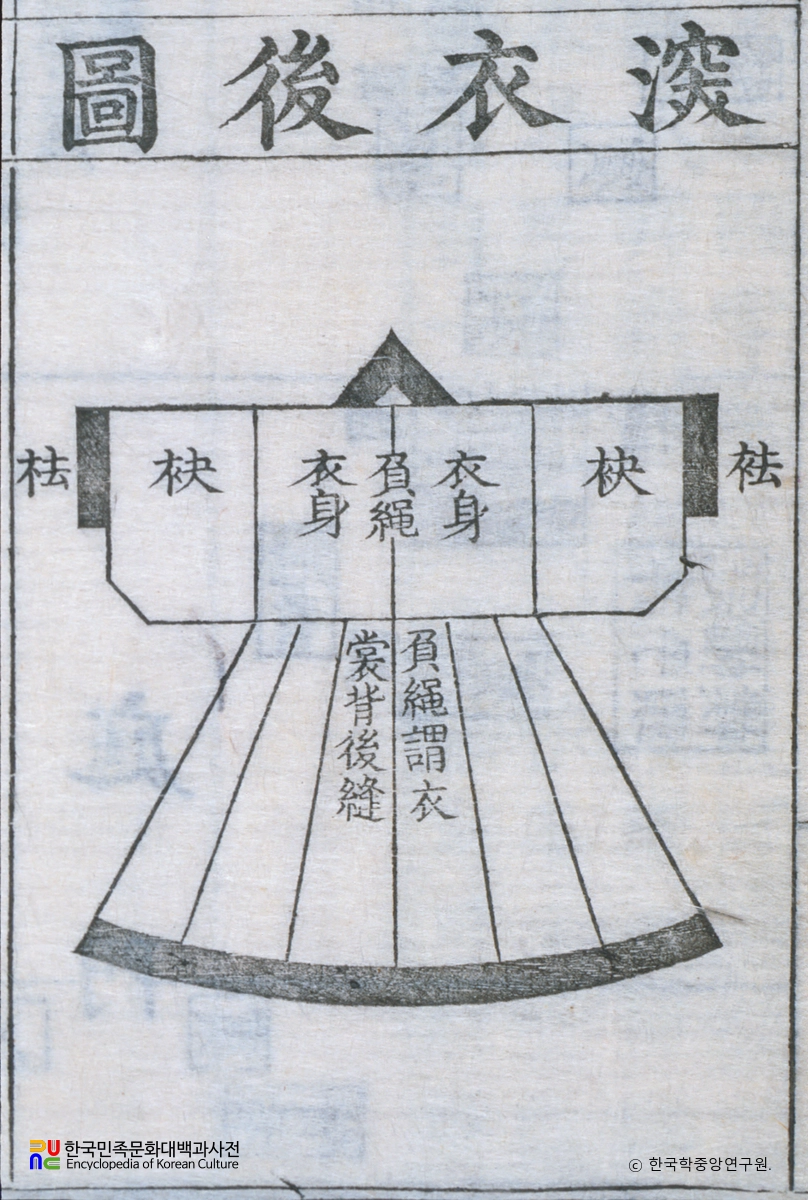 深衣後圖
袪
袂
衣身
負繩
衣身
袂
袪
負繩謂衣
裳背後縫
한국민족문화대백과사전
Encyclopedia of Korean Culture
ⓒ 한국학중앙연구원.